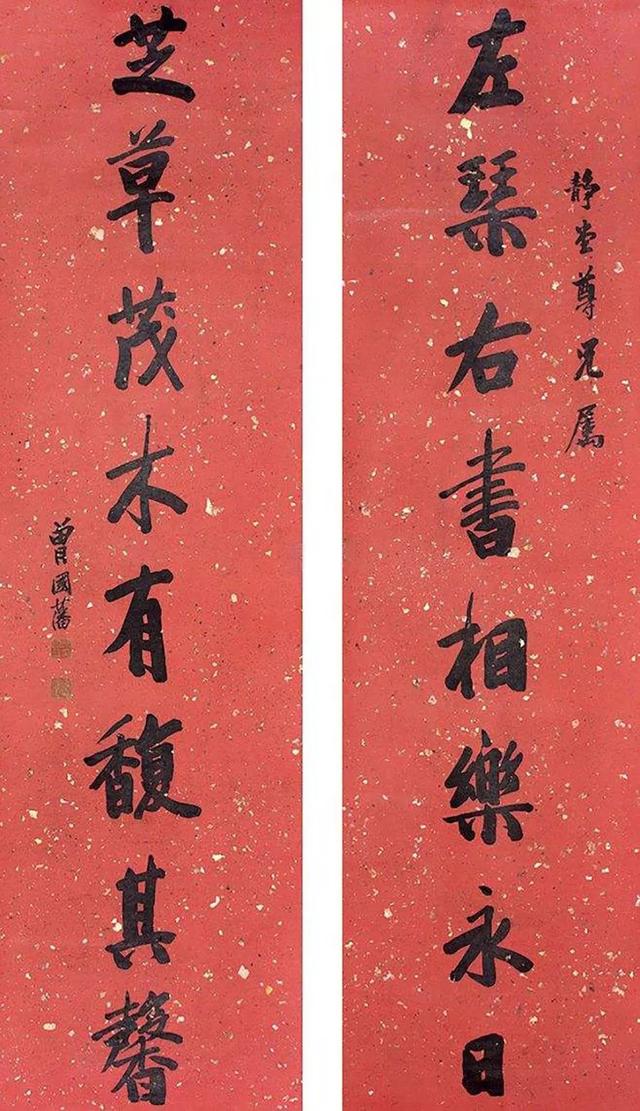 静堂尊兄属
左琴右书相樂永日
芝草茂木有馥其馨
曾國藩